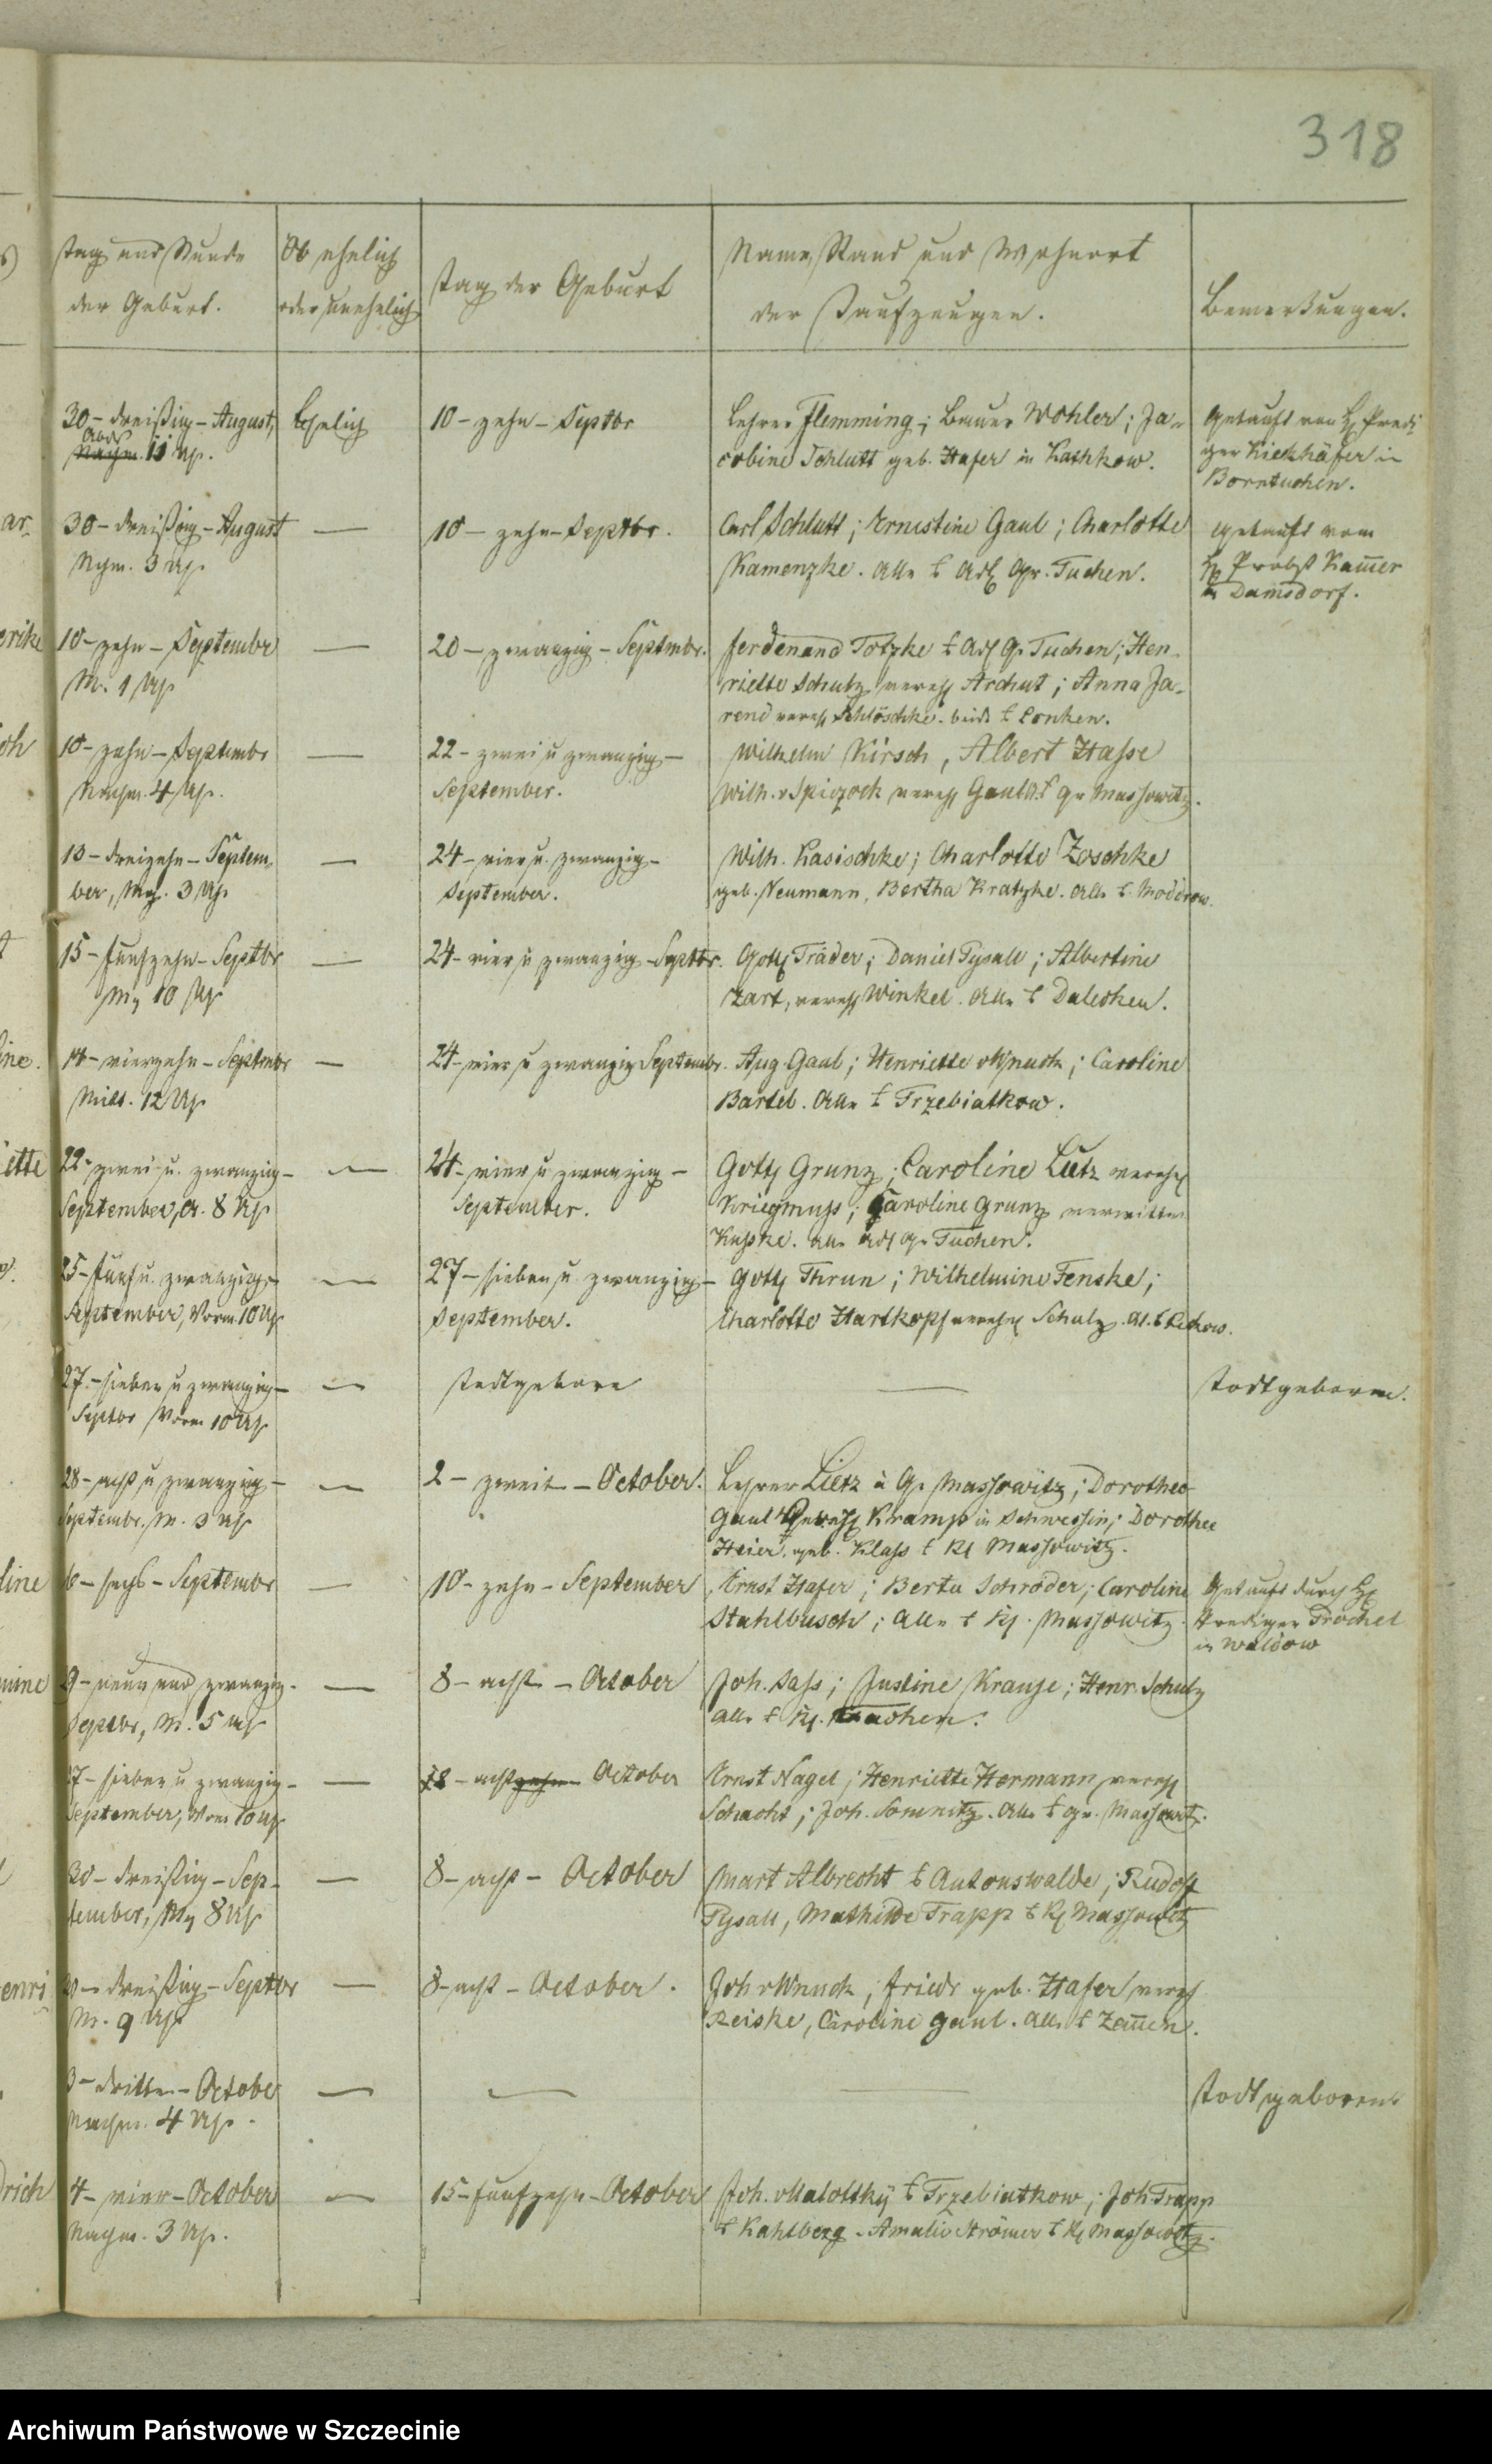 318
Tag und Stunde
der Geburt.
Ob ehelich
oder unehelich
Tag der Geburt
Name, Stand und Wohnort
der Taufzeugen.
Bemerkungen.
30 – dreißig – August,
Abds
Nachm. 11 Uhr.
Ehelich
10 – zehn – Septbr
Lehrer Flemming; Bauer Wohler; Ja-
cobine Schlutt geb. Hafer in Kathkow.
Getauft von H. Predi
ger Kiekhäfer in
Borntuchen.
ar
30 – dreißig – August
Nchm. 3 Uhr
—
10 – zehn – Septbr.
Carl Schlutt; Ernestine Gaul; Charlotte
Kamenzke. Alle Adl Gr. Tuchen.
getauft vom
H. Probst Kamer
in Damsdorf.
erike
10 – zehn – Septembr
M. 1 Uhr
—
20 – zwanzig – Septmbr.
Ferdinand Totzke Adl Gr Tuchen; Hen-
riette Schulz verehl Archut; Anna Ja-
rend verehl Schlöschke. beide Lonken.
oh
10 – zehn – Septembr
Nachm. 4 Uhr.
—
22 – zwei u zwanzig –
September.
Wilhelm Kirsch, Albert Hasse
Wilh. v Spiczock verehl Gaul Gr Massowitz.
13 – dreizehn – Septem-
ber, Mrg. 3 Uhr
—
24 – vier u. zwanzig –
September.
Wilh. Kasischke; Charlotte Zoschke
geb. Neumann, Bertha Kratzke. Alle Modderow.
15 – fünfzehn – Septbr
Mg 10 Uhr
—
24 – vier u zwanzig – Septbr.
Gottl Träder; Daniel Pysall; Albertine
Zart, verehl Winkel. Alle Duletken.
ine.
14 – vierzehn – Septmbr
Mitt. 12 Uhr
—
24 – vier u zwanzig Septembr.
Aug. Gaul; Henriette v Wnuck; Caroline
Bartel. Alle Trzebiatkow.
ette
22 – zwei u. zwanzig –
September, A. 8 Uhr
—
24 – vier u zwanzig –
September.
Gottl Grunz; Caroline Lietz verehl
Kriegmuss; Caroline Grunz verwittw
Kuschke. Alle Adl Gr Tuchen.
25 – fünf u. zwanzig –
September, Vorm. 10 Uhr
—
27 – sieben u zwanzig –
September.
Gottl Thrun; Wilhelmine Fenske;
Charlotte Hartkopf verehl Schulz. Al. Reckow.
27 – sieben u zwanzig –
Septbr Vorm 10 Uhr
—
Todtgeboren
—
Todtgeboren.
28 – acht u zwanzig –
Septembr. M. 3 Uhr
—
2 – zweite – October.
Lehrer Lietz a Gr Massowitz; Dorothee
Gaul verehl Kramp in Schwessin; Dorothee
Heier geb. Klass Kl Massowitz.
line
6 – sechs – Septembr
—
10 – zehn – September
Ernst Hafer; Berta Schröder; Caroline
Stahlbusch; Alle Kl. Massowitz.
Getauft durch H.
Prediger Tröchel
in Waldow
mine
29 – neun und zwanzig –
Septbr, M. 5 Uhr
—
8 – acht – October
Joh. Sass; Justine Krause; Henr. Schulz
Alle Kl. Tuchen.
27 – sieben u zwanzig –
September, Vorm 10 Uhr
—
18 – achtzehn October
Ernst Nagel; Henriette Hermann verehl
Schacht; Joh. Somnitz. Alle Gr. Massowitz.
30 – dreißig – Sep-
tember, Mg 8 Uhr
—
8 – acht – October
Mart Albrecht Antonswalde; Rudolf
Pysall, Mathilde Trapp Kl Massowitz
enri
30 – dreißig – Septbr
M. 9 Uhr
—
8 – acht – October.
Joh v Wnuck; Friedr geb. Hafer verehl
Reiske, Caroline Gaul. Alle Zemen.
3 – dritte – October
Nachm. 4 Uhr.
—
—
—
Todtgeboren.
drich
4 – vier – October
Nachm. 3 Uhr.
—
15 – fünfzehn – October
Joh. v Malottky Trzebiatkow; Joh Trapp
Kahlberg. Amalie Strömer Kl Massowitz.
Archiwum Państwowe w Szczecinie